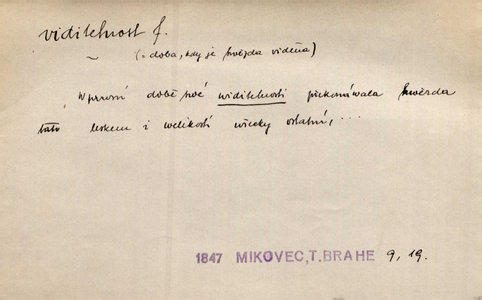 viditelnost f.
~ (= doba, kdy je hvězda viděna)
W prwní době své widitelnosti překonáwala hwězda
tato leskem i welikostí wšecky ostatní, ...
1847 MIKOVEC, T. BRAHE 9, 19.